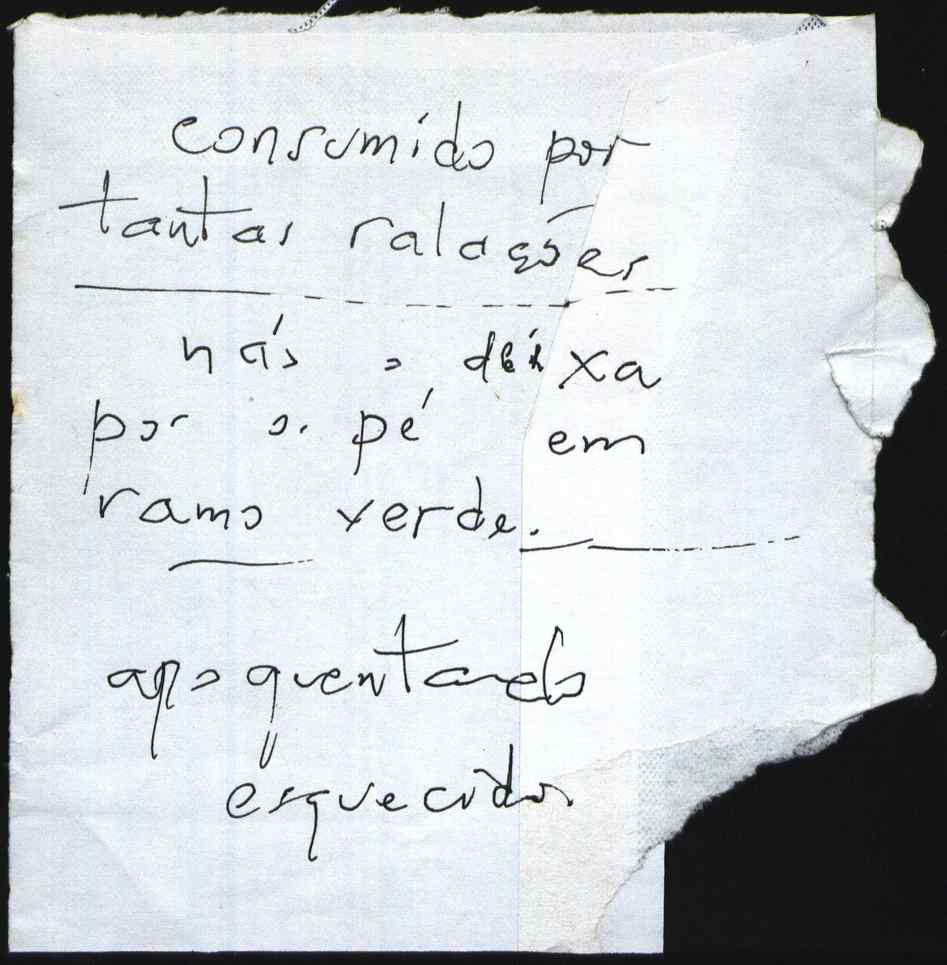 consumido por
tantas ralações
não o deixa
por o pé em
ramo verde.
apoquentando
esquecido